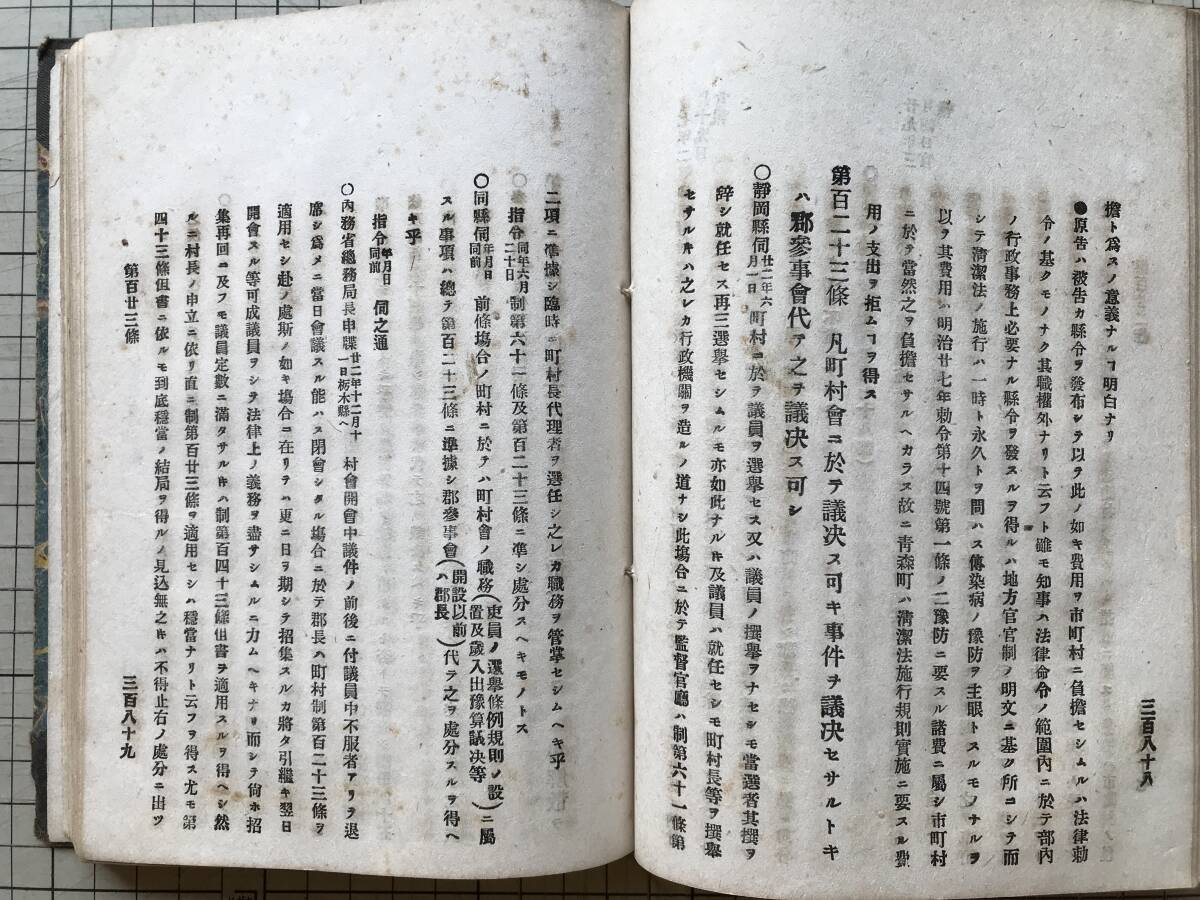 三百八十八
擔ト爲スノ意義ナルヿ明白ナリ
●原告ハ被告カ縣令ヲ發布シテ以テ此ノ如キ費用ヲ市町村ニ負擔セシムルハ法律勅
令ノ基クモノナク其職權外ナリト云フト雖モ知事ハ法律命令ノ範圍內ニ於テ部內
ノ行政事務上必要ナル縣令ヲ發スルヲ得ルハ地方官官制ノ明文ニ基ク所ニシテ而
シテ淸潔法ノ施行ハ一時ト永久トヲ問ハス傳染病ノ豫防ヲ主眼トスルモノナルヲ
以テ其費用ハ明治廿七年勅令第十四號第一條ノ二豫防ニ要スル諸費ニ屬シ市町村
ニ於テ當然之ヲ負擔セサルヘカラス故ニ靑森町ハ淸潔法施行規則實施ニ要スル費
用ノ支出ヲ拒ムヿヲ得ス
第百二十三條 凡町村會ニ於テ議決ス可キ事件ヲ議決セサルトキ
ハ郡參事會代テ之ヲ議決ス可シ
〇靜岡縣伺廿二年六月一日 町村ニ於テ議員ヲ選擧セス又ハ議員ノ撰擧ヲナセシモ當選者其撰ヲ
辭シ就任セス再三選擧セシムルモ亦如此ナルㇳキ及議員ハ就任セシモ町村長等ヲ撰擧
セサルㇳキハ之レカ行政機關ヲ造ルノ道ナシ此塲合ニ於テ監督官廳ハ制第六十一條第
二項ニ準據シ臨時ニ町村長代理者ヲ選任シ之レカ職務ヲ管掌セシムヘキ乎
〇指令同年六月二十日 制第六十一條及第百二十三條ニ準シ處分スヘキモノトス
〇同縣伺年月日同前 前條塲合ノ町村ニ於テハ町村會ノ職務(吏員ノ選擧條例規則ノ設置及歲入出豫算議決等)ニ屬
スル事項ハ總テ第百二十三條ニ準據シ郡參事會(開設以前ハ郡長)代テ之ヲ處分スルヲ得ヘ
キ乎
指令年月日同前 伺之通
〇內務省總務局長申牒廿二年十二月十一日栃木縣ヘ 村會開會中議件ノ前後ニ付議員中不服者アリテ退
席シ爲メニ當日會議スル能ハス閉會シタル塲合ニ於テ郡長ハ町村制第百二十三條ヲ
適用セシ赴ノ處斯ノ如キ塲合ニ在リテハ更ニ日ヲ期シテ招集スルカ將タ引繼キ翌日
開會スル等可成議員ヲシテ法律上ノ義務ヲ盡サシムルニ力ムヘキナリ而シテ尙ホ招
集再回ニ及フモ議員定數ニ滿タサルㇳキハ制第百四十三條但書ヲ適用スルヲ得ヘシ然
ルニ村長ノ申立ニ依リ直ニ制第百廿三條ヲ適用セシハ穩當ナリト云フヲ得ス尤モ第
四十三條但書ニ依ルモ到底穩當ノ結局ヲ得ルノ見込無之ㇳキハ不得止右ノ處分ニ出ツ
第百廿三條
三百八十九